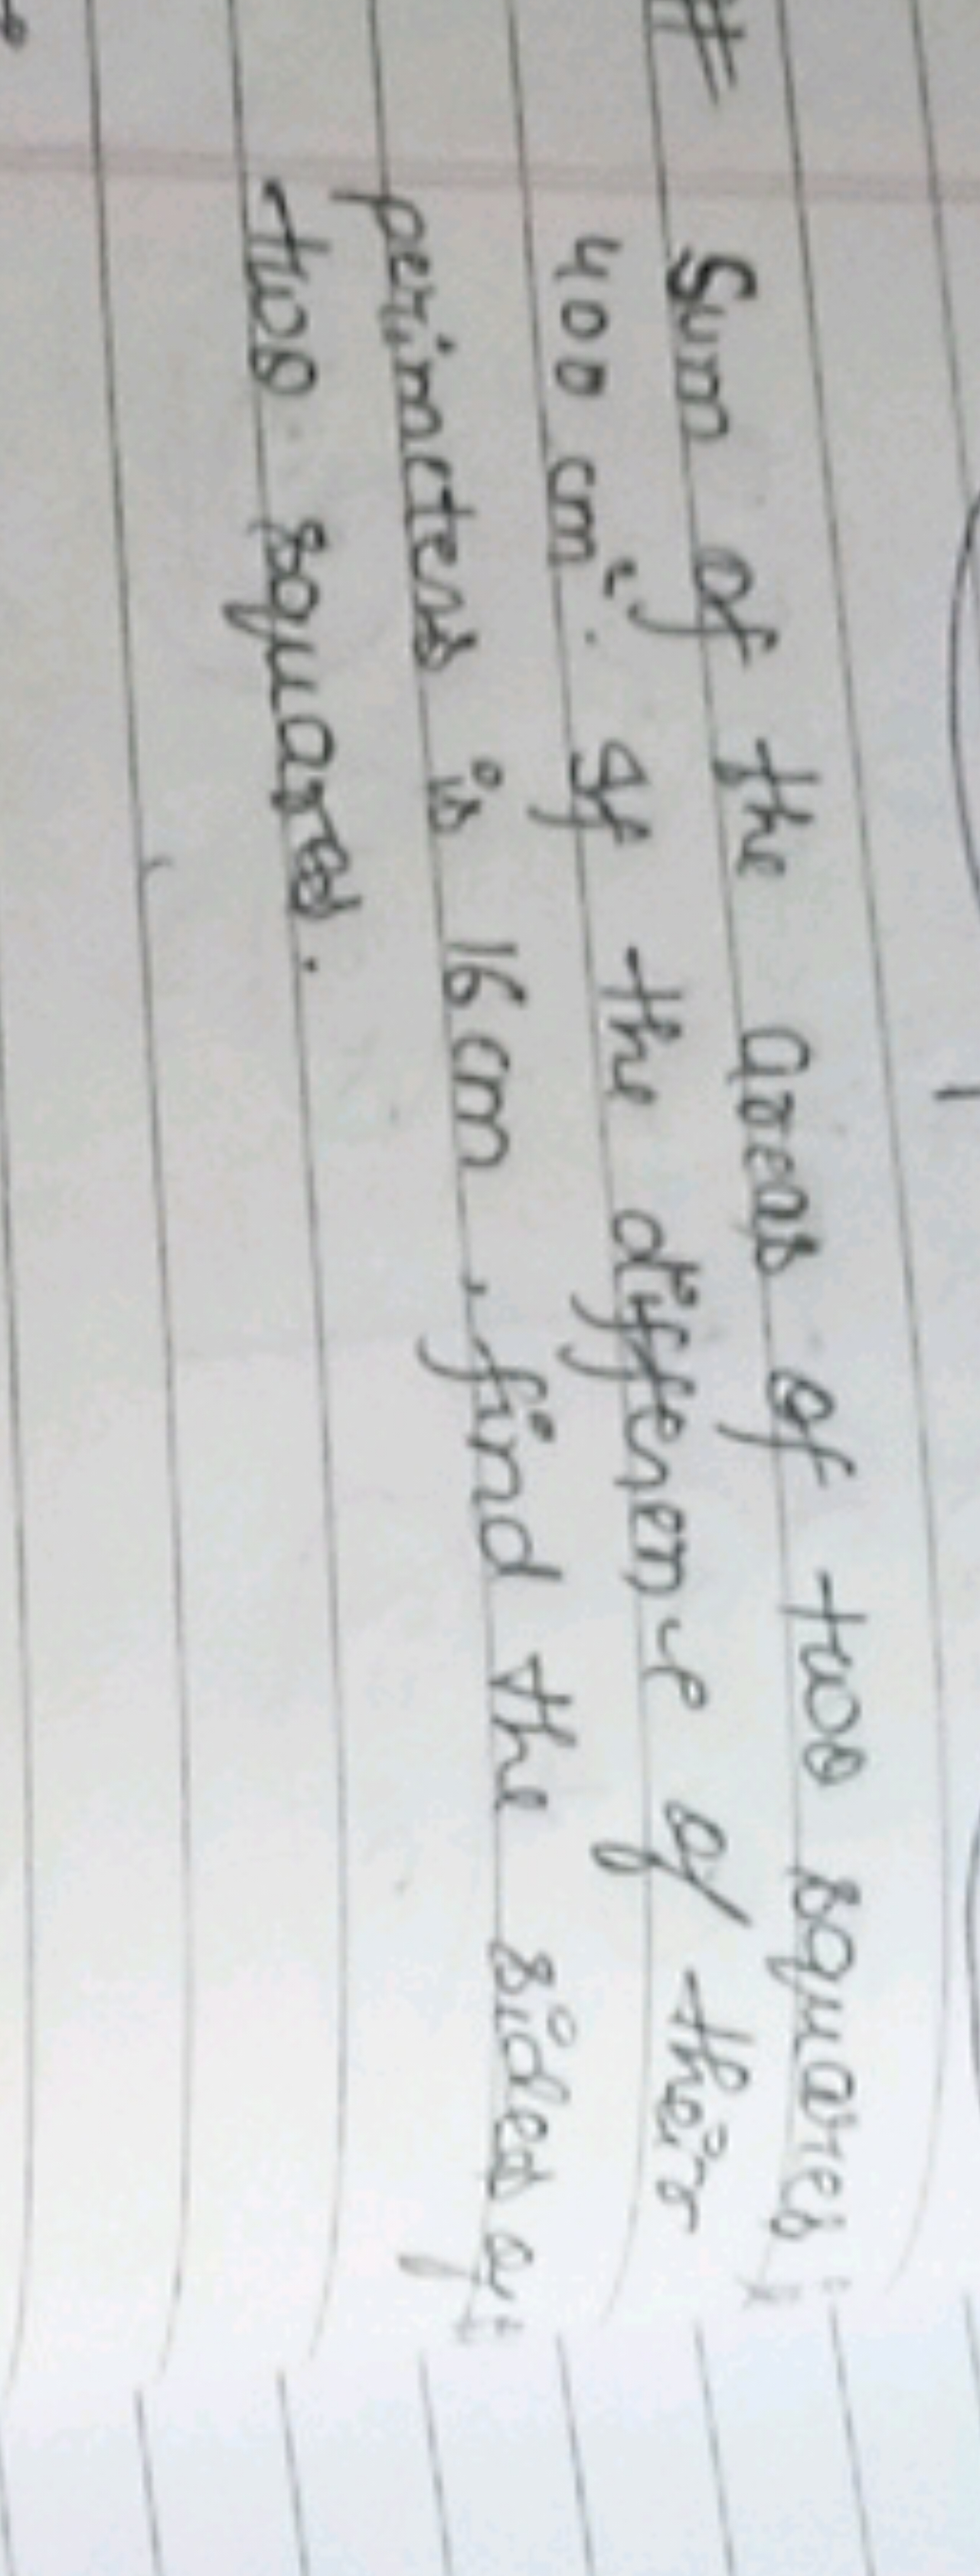 # Sum of the areas of two squares is
400 cm². If the difference of their
perimeters is 16 cm, find the sides of
two squares.